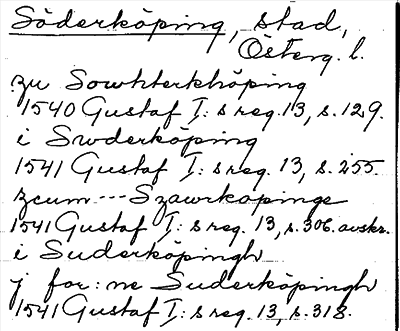 Söderköping, stad,
Österg. l.
zu Sowhterkhöping
1540 Gustaf I: s reg. 13, s. 129.
i Swderköping
1541 Gustaf I: s reg. 13, s. 255.
zcum --- Szawrkopinge
1541 Gustaf I: s reg. 13, s. 306. avskr.
i Suderköpingh
j for: ne Suderköpingh
1541 Gustaf I: s reg. 13, s. 318.